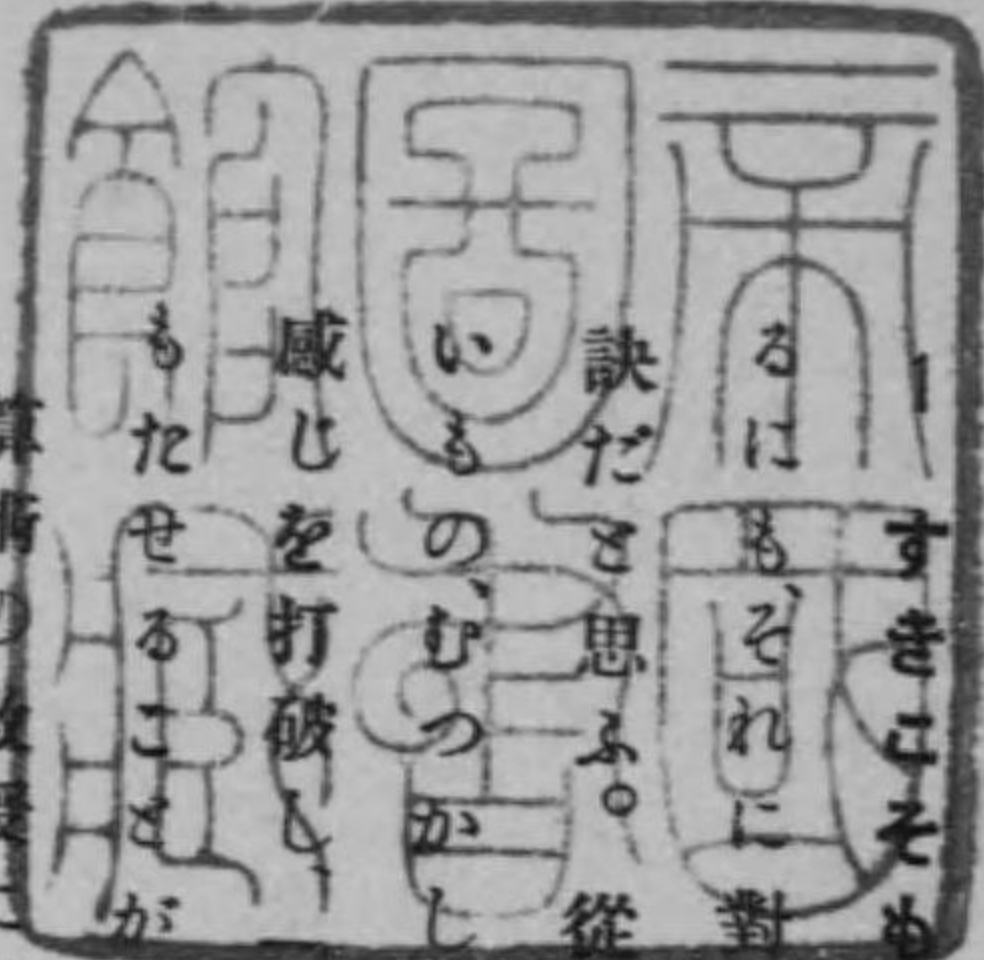 帝國
圖書
館藏
ーすきこそも
るにも、それに對
訣だと思ふ。從
いもの、むつかし
感じを打破し
もたせることが